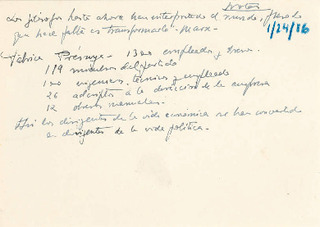 Notas
1/24/86
Los filósofos hasta ahora han interpretado el mundo, pero lo
que hace falta es transformarlo - Marx -
Fábrica 1300 empleados y
119 miembros del partido
120 ingenieros, técnicos y empleados
26 adscriptos a la dirección de la empresa
12 obreros manuales.
Así los dirigentes de la vida económica se han convertido
en dirigentes de la vida política.